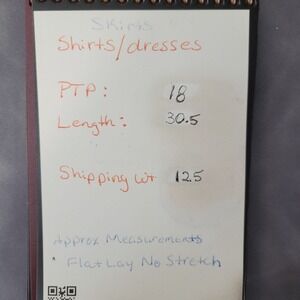 Skirts
Shirts/dresses
PTP: 18
Length: 30.5
Shipping wt 12.5
Approx Measurements
* Flat Lay No Stretch